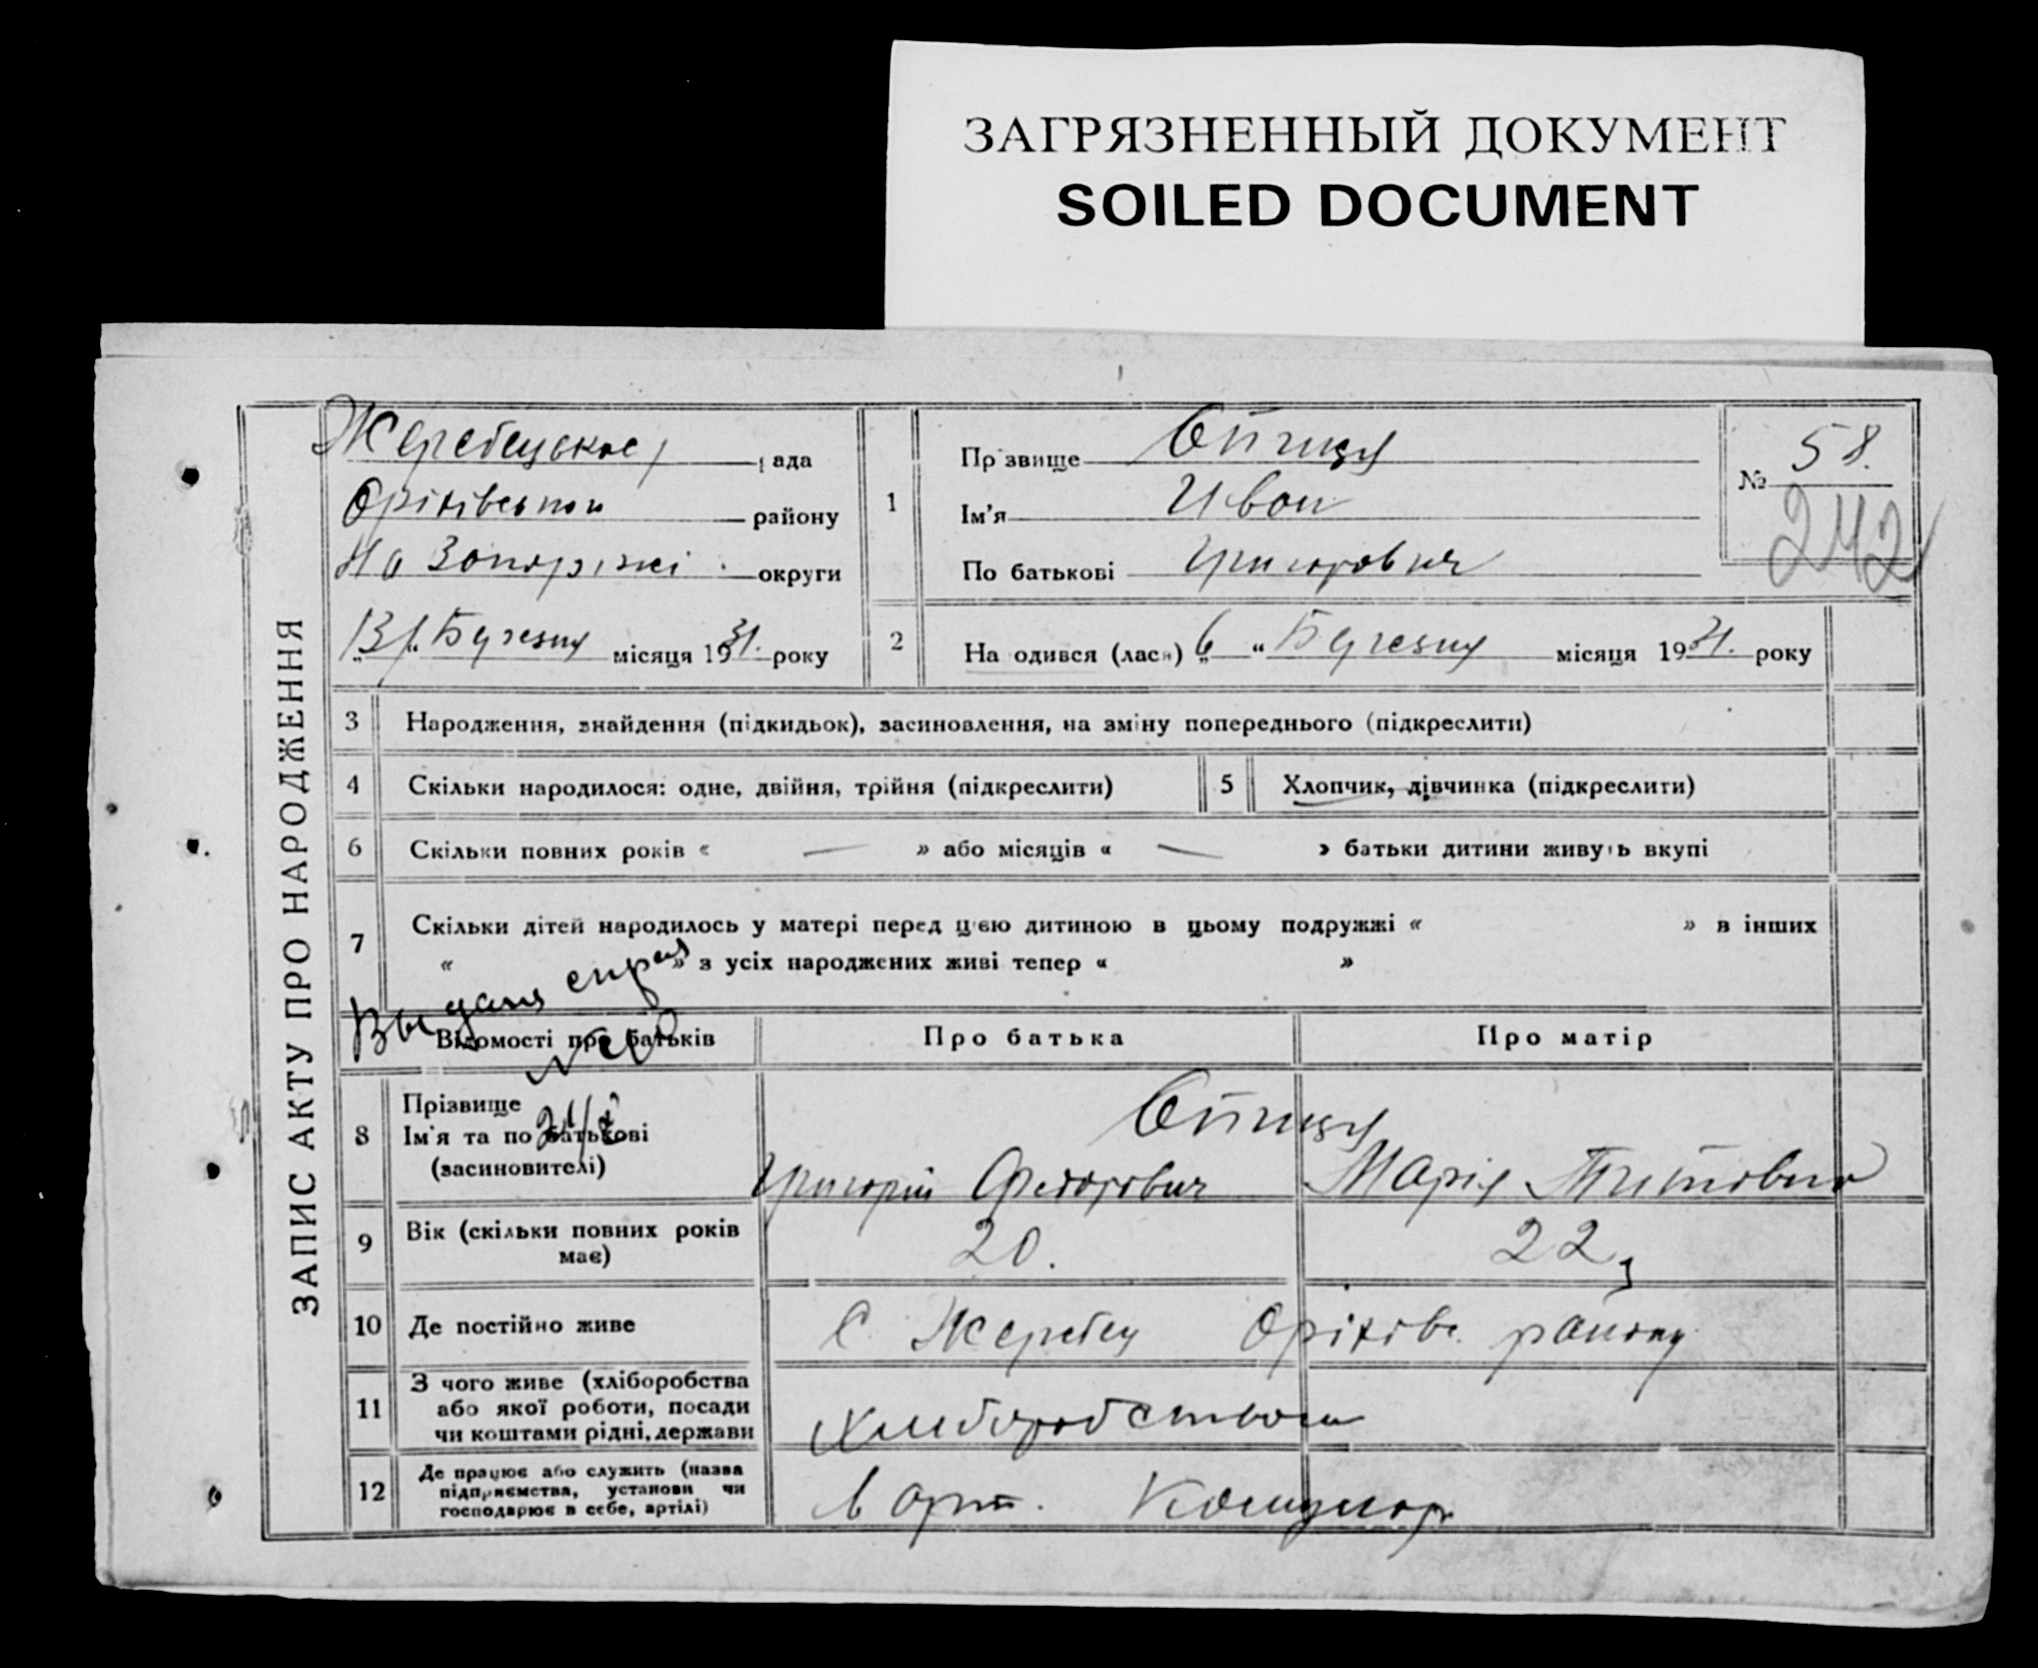 ЗАГРЯЗНЕННЫЙ ДОКУМЕНТ
SOILED DOCUMENT
ЗАПИС АКТУ ПРО НАРОДЖЕННЯ
Жеребецькое рада
Оріхівському району
На Запоріжжі округи
13 „Березня місяця 1931. року
1
Прізвище
Ім'я Иван
По батькові Григорович
№ 58.
242
2
Народився (лася) „6 “ Березня місяця 1931. року
3 Народження, знайдення (підкидьок), засиновлення, на зміну попереднього (підкреслити)
4 Скільки народилося: одне, двійня, трійня (підкреслити)
5 Хлопчик, дівчинка (підкреслити)
6 Скільки повних років « — » або місяців « — » батьки дитини живуть вкупі
7 Скільки дітей народилось у матері перед цією дитиною в цьому подружжі « » в інших
« » з усіх народжених живі тепер « »
Выдана
Відомості про батьків Про батька Про матір
8 Прізвище
Ім'я та по батькові
(засиновителі)
Григорій Федорович Марія Титовна
9 Вік (скільки повних років
має)
20. 22
10 Де постійно живе С Жеребец Оріхівс. району
11 З чого живе (хліборобства
або якої роботи, посади
чи коштами рідні, держави
Хліборобством
12 Де працює або служить (назва
підприємства, установи чи
господарює в себе, артілі)
в арт. Комунар